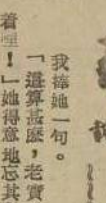 我捧她一句。
「這算甚麽，老實
着哩！」她得意地忘其